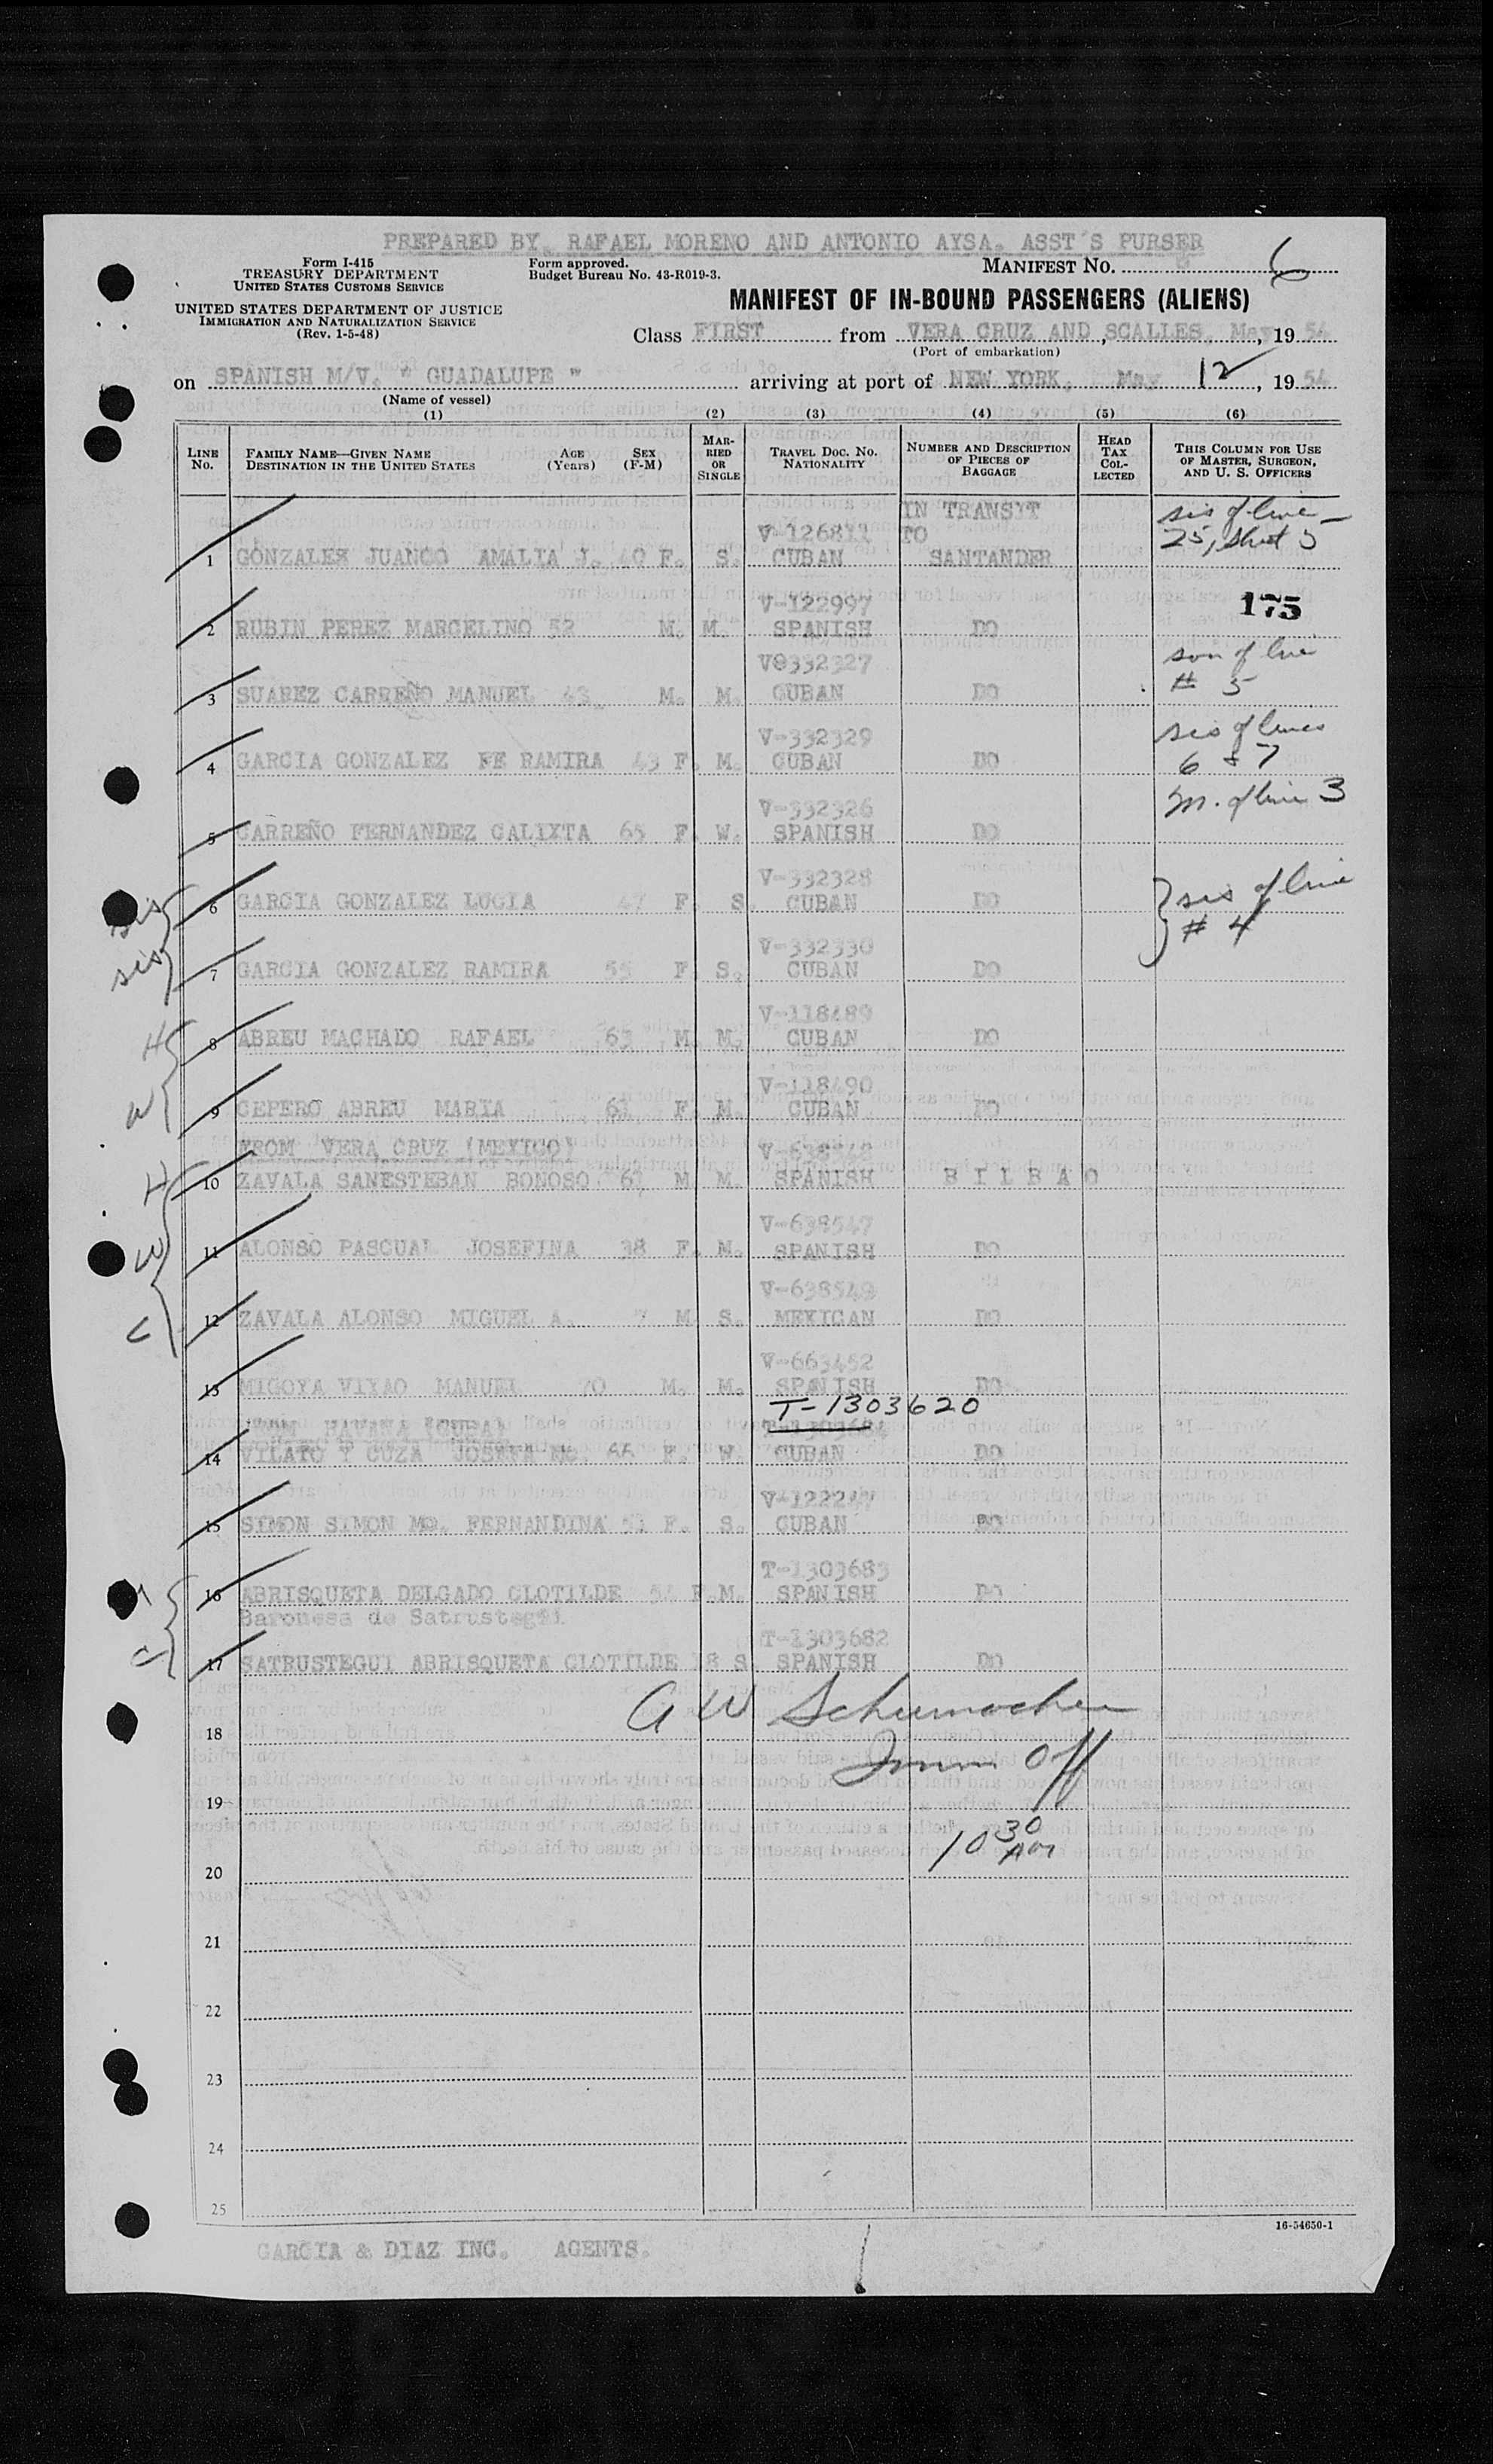 PREPARED BY. RAFAEL MORENO AND ANTONIO AYSA. ASST'S PURSER
Form I-415
TREASURY DEPARTMENT
UNITED STATES CUSTOMS SERVICE
Form approved.
Budget Bureau No. 43-R019-3.
MANIFEST No. 6
UNITED STATES DEPARTMENT OF JUSTICE
IMMIGRATION AND NATURALIZATION SERVICE
(Rev. 1-5-48)
MANIFEST OF IN-BOUND PASSENGERS (ALIENS)
Class FIRST from VERA CRUZ AND SCALLES, May, 19 54
(Port of embarkation)
on SPANISH M/V. " GUADALUPE " arriving at port of NEW YORK, May 12, 19 54
(Name of vessel)
(1) (2) (3) (4) (5) (6)
LINE No. FAMILY NAME—GIVEN NAME DESTINATION IN THE UNITED STATES AGE (Years) SEX (F-M) MARRIED OR SINGLE TRAVEL DOC. NO. NATIONALITY NUMBER AND DESCRIPTION OF PIECES OF BAGGAGE HEAD TAX COLLECTED THIS COLUMN FOR USE OF MASTER, SURGEON, AND U. S. OFFICERS
IN TRANSIT sis of line
V-126811 TO 25, sheet 5
1 GONZALES JUANCO AMALIA J. 40 F. S. CUBAN SANTANDER
V-122997 175
2 RUBIN PEREZ MARCELINO 52 M. M. SPANISH DO
V0332327 son of line
3 SUAREZ CARREÑO MANUEL 43 M. M. CUBAN DO # 5
V-332329 sis of lines
4 GARCIA GONZALEZ FE RAMIRA 43 F. M. CUBAN DO 6 & 7
V-332326 M. of line 3
5 CARREÑO FERNANDEZ CALIXTA 65 F. W. SPANISH DO
V-332328
sis 6 GARCIA GONZALEZ LUCIA 47 F S. CUBAN DO sis of line
# 4
V-332330
sis 7 GARCIA GONZALEZ RAMIRA 55 F S. CUBAN DO
V-118489
H 8 ABREU MACHADO RAFAEL 63 M M. CUBAN DO
V-118490
W 9 CEPERO ABREU MARIA 61 F. M. CUBAN DO
FROM VERA CRUZ (MEXICO) V-638548
H 10 ZAVALA SANESTEBAN BONOSO 61 M M. SPANISH B I L B A O
V-638547
W 11 ALONSO PASCUAL JOSEFINA 38 F. M. SPANISH DO
V-638549
C 12 ZAVALA ALONSO MIGUEL A. 7 M S. MEXICAN DO
V-663452
13 MIGOYA VIYAO MANUEL 70 M. M. SPANISH DO
T-1303620
FROM HAVANA (CUBA)
14 VILATO Y CUZA JOSEFA Ma. 66 F. W. CUBAN DO
V-122247
15 SIMON SIMON Ma. FERNANDINA 51 F. S. CUBAN DO
T-1303683
M 16 ABRISQUETA DELGADO CLOTILDE F.M. SPANISH DO
Baronesa de Satrustegui
T-1303682
C 17 SATRUSTEGUI ABRISQUETA CLOTILDE 18 S SPANISH DO
A W Schumacher
18
Imm Off
19
10 30 AM
20
21
22
23
24
25
16-54650-1
GARCIA & DIAZ INC. AGENTS.